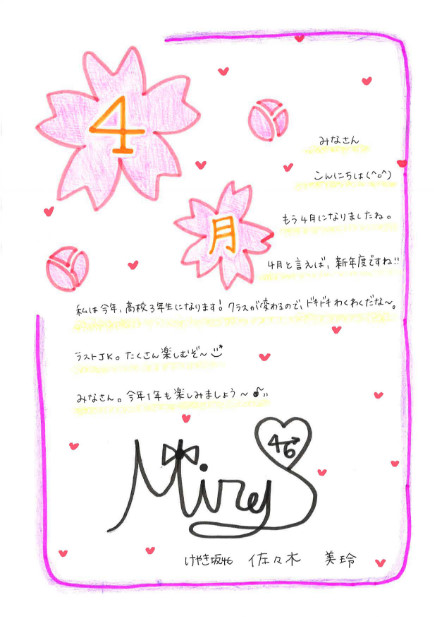 4
月
みなさん
こんにちは(^o^)
もう4月になりましたね。
4月と言えば、新年度ですね!!
私は今年、高校3年生になります!クラスが変わるので、ドキドキわくわくだな〜。
ラストJK。たくさん楽しむぞ〜
みなさん。今年1年も楽しみましょう〜♪
Mirey
46
けやき坂46 佐々木 美玲